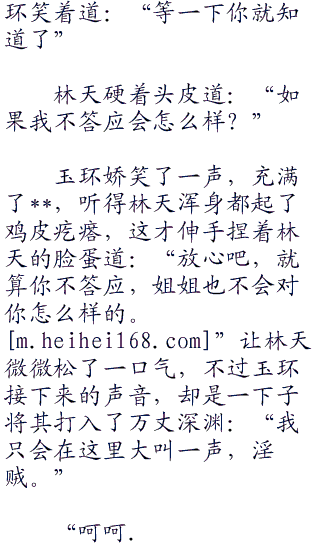 环笑着道：“等一下你就知
道了”
林天硬着头皮道：“如
果我不答应会怎么样？”
玉环娇笑了一声，充满
了**，听得林天浑身都起了
鸡皮疙瘩，这才伸手捏着林
天的脸蛋道：“放心吧，就
算你不答应，姐姐也不会对
你怎么样的。
[m.heihei168.com]”让林天
微微松了一口气，不过玉环
接下来的声音，却是一下子
将其打入了万丈深渊：“我
只会在这里大叫一声，淫
贼。”
“呵呵.